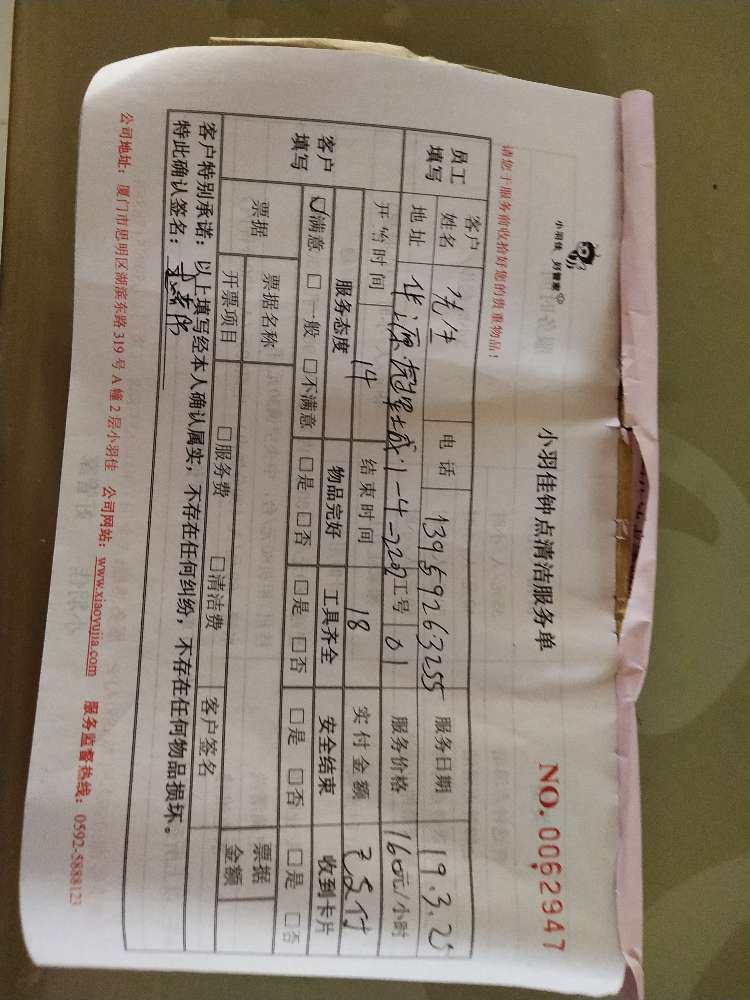 小羽佳 好管家
小羽佳钟点清洁服务单
NO. 0062947
请您于服务前收拾好您的贵重物品！
员工填写 客户姓名 电话 13959263255 服务日期 19.3.25
地址 1-4-2202 工号 01 服务价格 160元/小时
客户填写 开始时间 14 结束时间 18 实付金额
服务态度 物品完好 工具齐全 安全结束 收到卡片
☑满意 □一般 □不满意 □是 □否 □是 □否 □是 □否 □是 □否
票据 票据名称 票据金额
开票项目 □服务费 □清洁费 客户签名
客户特别承诺：以上填写经本人确认属实，不存在任何纠纷，不存在任何物品损坏。
特此确认签名：
公司地址：厦门市思明区湖滨东路319号A幢2层小羽佳 公司网站：www.xiaoyujia.com 服务监督热线：0592-5888123